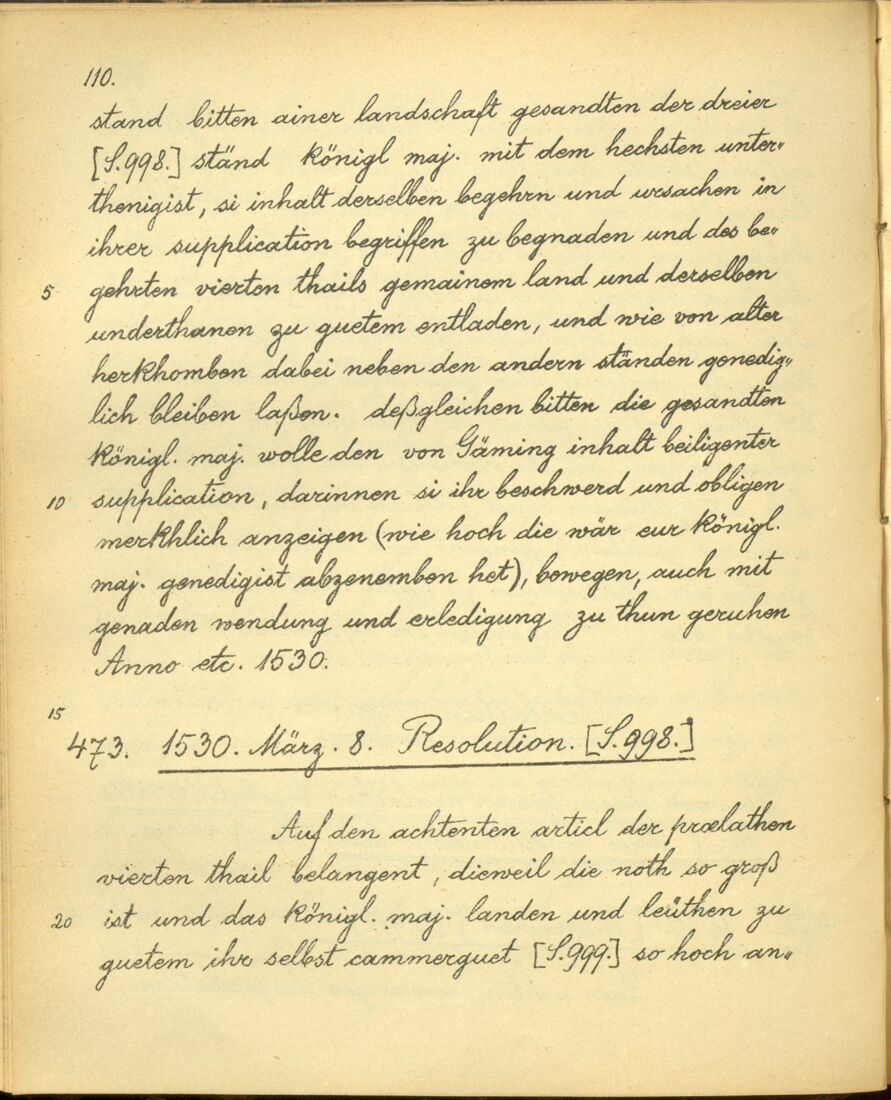 110.
stand bitten ainer landschaft gesandten der dreier
[S.998.] ständ königl maj. mit dem hechsten unter„
thenigist, si inhalt derselben begehrn und ursachen in
ihrer supplication begriffen zu begnaden und des be„
5 gehrten vierten thails gemainem land und derselben
underthanen zu guetem entladen, und wie von alter
herkhomben dabei neben den andern ständen genedig„
lich bleiben laßen. deßgleichen bitten die gesandten
königl. maj. wolle den von Gäming inhalt beiligenter
10 supplication, darinnen si ihr beschwerd und obligen
merkhlich anzeigen (wie hoch die wär eur königl.
maj. genedigist abzenemben het), bewegen, auch mit
genaden wendung und erledigung zu thun geruhen
Anno etc. 1530.
15
473. 1530. März. 8. Resolution. [S.998.]
Auf den achtenten articl der prœlathen
vierten thail belangent, dieweil die noth so groß
20 ist und das königl. maj. landen und leüthen zu
guetem ihr selbst cammerguet [S.999.] so hoch an„